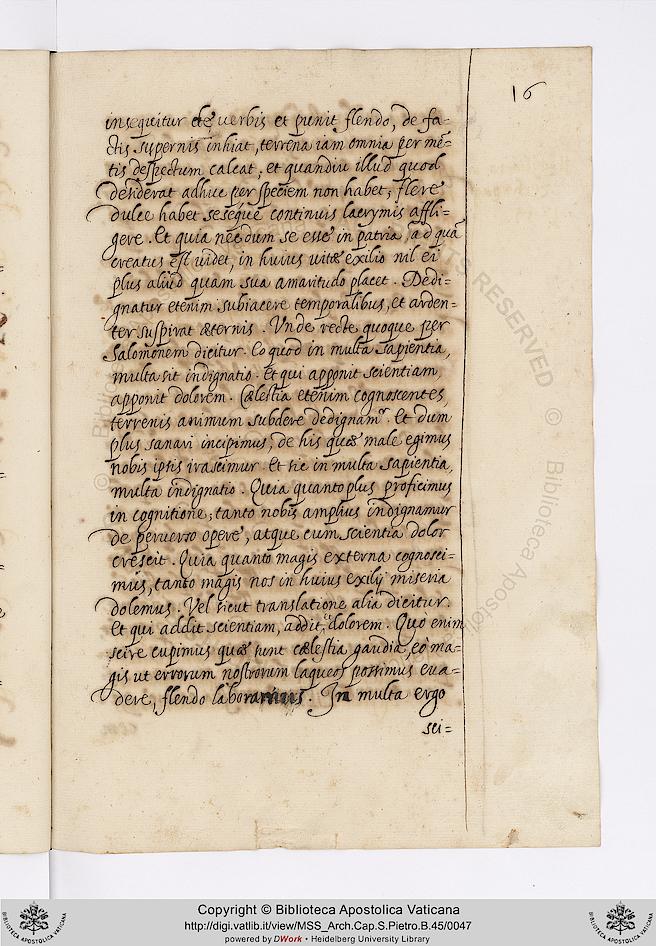 16
insequitur de verbis et punit flendo, de fa-
ctis supernis inhiat, terrena iam omnia per mē-
tis despectum calcat, et quandiu illud quod
desiderat adhuc per speciem non habet, flere
dulce habet seseque continuis lacrymis affli=
gere. Et quia nec dum se esse in patria, ad quā
creatus est videt, in huius vitæ exilio nil ei
plus aliud quam sua amaritudo placet. Dedi=
gnatur etenim subiacere temporalibus, et arden-
ter suspirat æternis. Unde recte quoque per
Salomonem dicitur. Eo quod in multa sapientia,
multa sit indignatio. Et qui apponit scientiam,
apponit dolorem. Cælestia etenim cognoscentes,
terrenis animum subdere dedignamʳ. Et dum
plus sanari incipimus, de his quæ male egimus
nobis ipsis irascimur. Et sic in multa sapientia,
multa indignatio. Quia quanto plus proficimus
in cognitione, tanto nobis amplius indignamur
de perverso opere, atque cum scientia dolor
crescit. Quia quanto magis externa cognosci=
mus, tanto magis nos in huius exilij miseria
dolemus. Vel sicut translatione alia dicitur.
Et qui addit scientiam, addit dolorem. Quo enim
scire cupimus quæ sunt cælestia gaudia, eo ma-
gis ut errorum nostrorum laqueos possimus eva-
dere, flendo laboramus. In multa ergo
sci=
RIGHTS RESERVED © Biblioteca Apostolica
Copyright © Biblioteca Apostolica Vaticana
http://digi.vatlib.it/view/MSS_Arch.Cap.S.Pietro.B.45/0047
powered by DWork • Heidelberg University Library